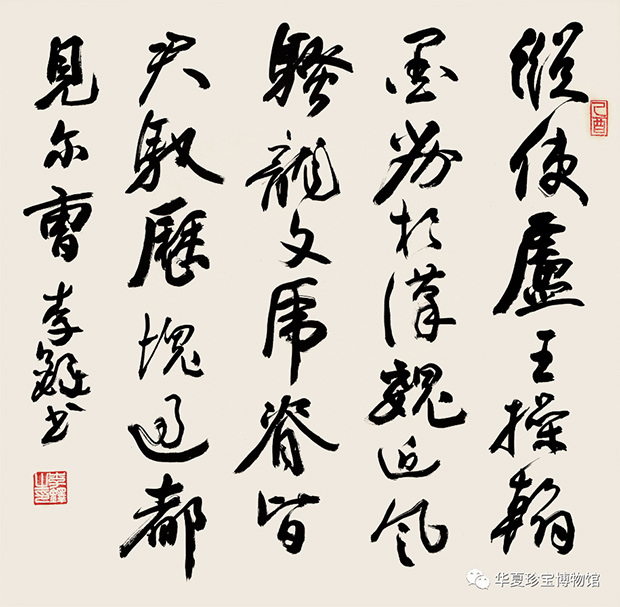 縱使盧王操翰
墨劣於漢魏近風
騷龍文虎脊皆
君馭歷塊過都
見尔曹 李鐸书
华夏珍宝博物馆